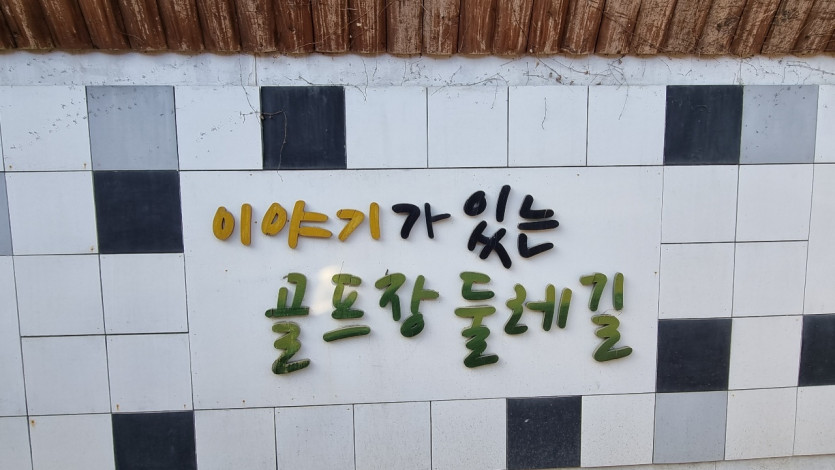 이야기가 있는
골프장 둘레길